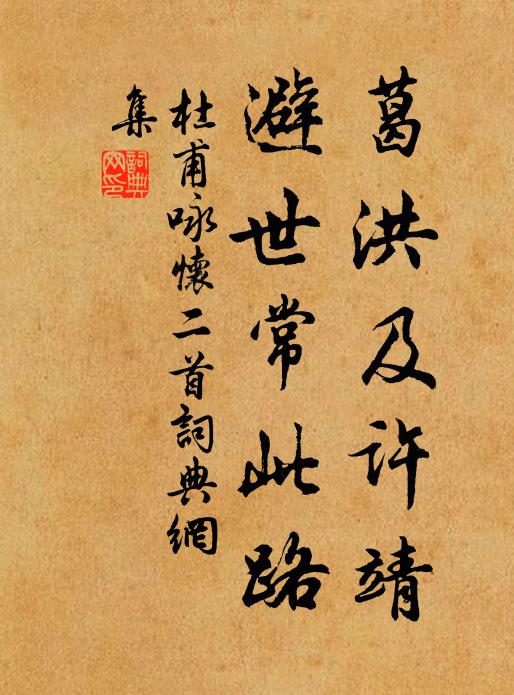 葛洪及許靖
避世常此路
杜甫咏懷二首詞典網
集
詞典网印